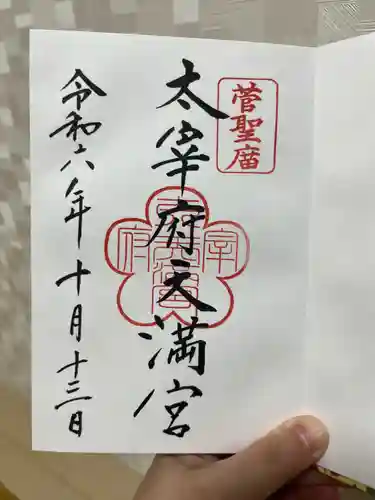 菅聖廟
太宰府天満宮
令和六年十月十三日